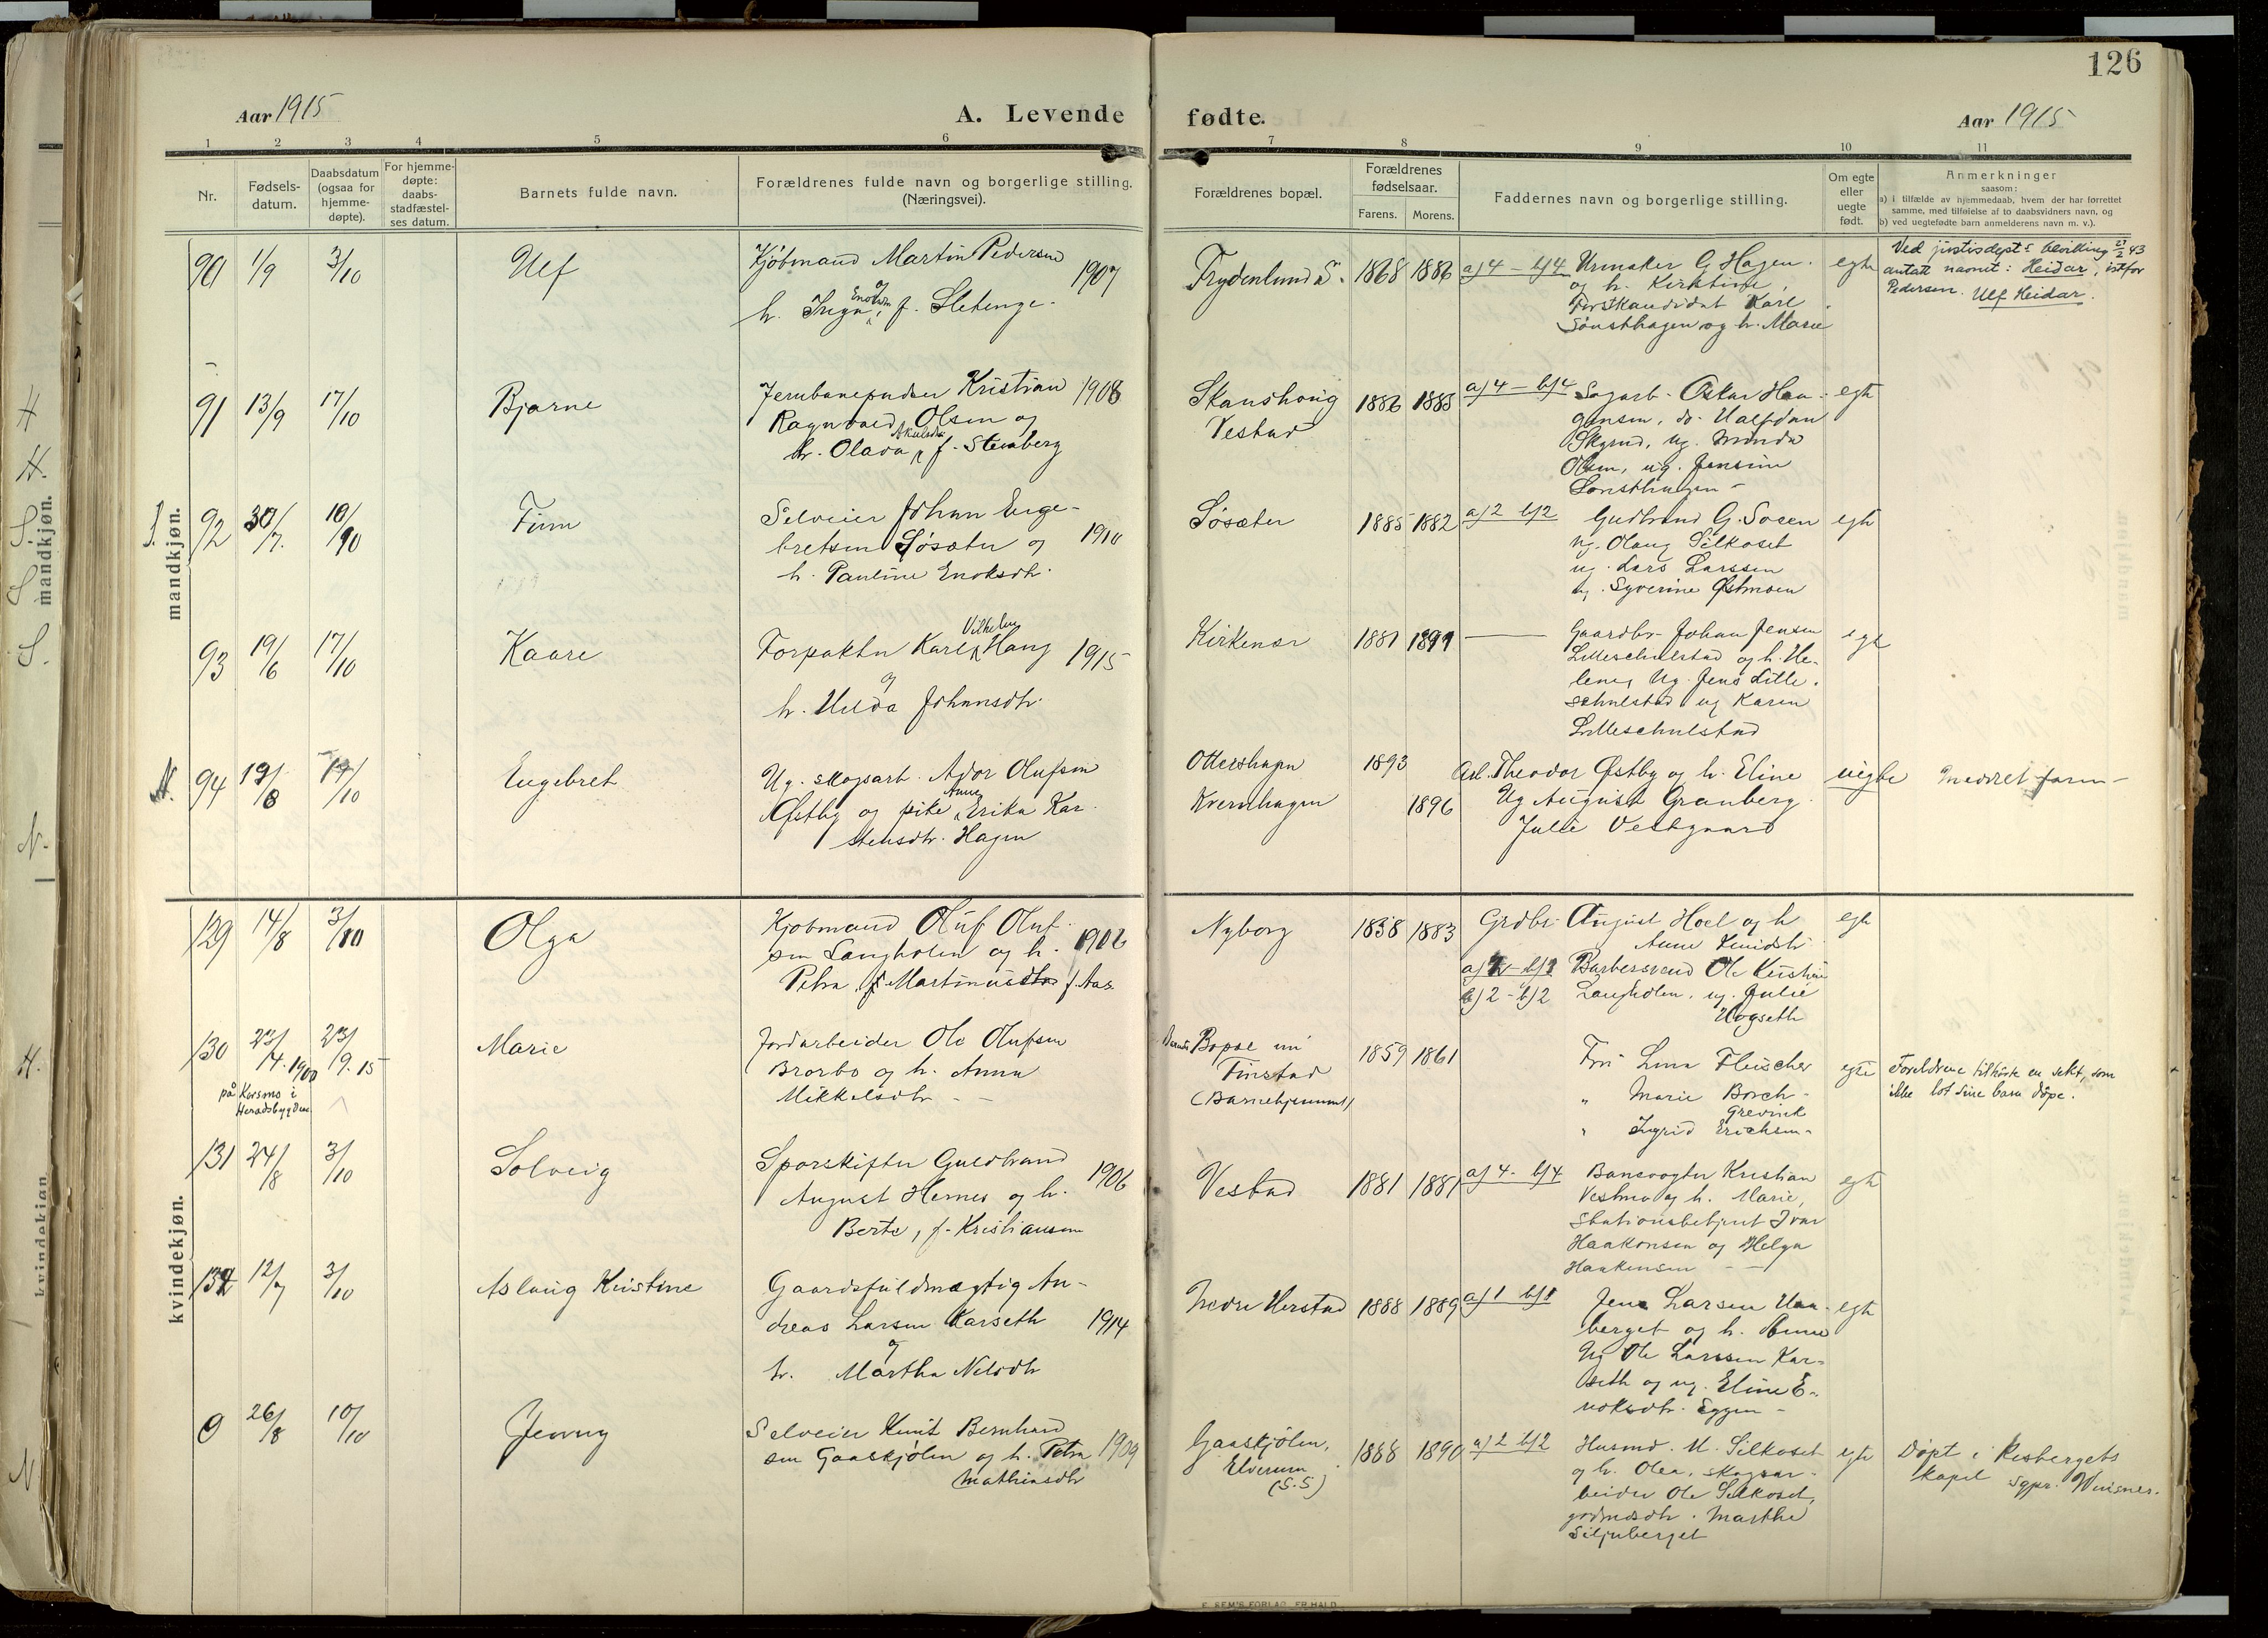 126
Aar 1915
A. Levende
fødte.
Aar 1915
1 2 3 4 5 6 7 8 9 10 11
Nr.
Fødsels-
datum.
Daabsdatum
(ogsaa for
hjemme-
døpte).
For hjemme-
døpte:
daabs-
stadfæstel-
ses datum.
Barnets fulde navn.
Forældrenes fulde navn og borgerlige stilling.
(Næringsvei).
Forældrenes bopæl.
Forældrenes
fødselsaar.
Farens. Morens.
Faddernes navn og borgerlige stilling.
Om egte
eller
uegte
født.
Anmerkninger
saasom:
a) i tilfælde av hjemmedaab, hvem der har forrettet
samme, med tilføielse af to daabsvidners navn, og
b) ved uegtefødte barn anmelderens navn m. v.).
mandkjøn.
90 1/9 3/10 Ulf
Kjøbmand Martin Pedersen
og 1907
h. Inga, f. Sletenge.
Frydenlund S. 1868 1886 a)4 – b)4
Urmaker G Hagen.
og h. Kirstine,
Forstkandidat Karl
Sønsthagen og h. Marie
egte
Ved justisdept.s bevilling 27/2 43
antatt navnet: Heidar, istfor
Pedersen. Ulf Heidar.
91 13/9 17/10 Bjarne
Kristian 1908
Ragnvald Olsen og
h. Olava f. Stenberg
Skanshoug
Vestad
1886 1888 a)4 – b)4
Sagarb. Oskar Haa-
gensen, do. Halfdan
Skyrud, ug. Minda
Olsen, ug. Jensine
Sønsthagen –
egte
S. 92 30/7. 10/10 Finn
Selveier Johan Enge-
bretsen Søsæter og 1910
h. Pauline Enoksdtr.
Søsæter 1885 1882 a)2 b)2
Gudbrand G. Sosen
ug. Olaug Silkoset
ug. Lars Larssen
ug. Syverine Østmoen
egte
93 19/6 17/10 Kaare
Vilhelm
Forpakter Karl Haug 1915
og
h. Hilda Johansdtr.
Kirkenær 1881 1891
Gaardbr. Johan Jensen
Lilleschulstad og h. He-
lene, Ug. Jens Lille-
schulstad ug Karen
Lilleschulstad
egte
N. 94 19/8 17/10 Engebret
Ug. skogsarb. Ador Olufsen
Anne
Østby og pike Erika Kar-
stensdtr. Hagen
Ottershagen 1893
Kvernhagen 1896
Arb. Theodor Østby og h. Eline
Ug August Granberg
Julie Vestgaard
uegte
kvindekjøn.
129 14/8 3/10 Olga
Kjøbmand Oluf Oluf-
sen Langholen og h. 1902
Petra, Martinusdtr f. Aas
Nyborg 1838 1883
Grdbr August Hoel og h
Anne
Langholen, ug. Julie
Hogseth
b)2 – b)2
egte
130 23/4. 1900 23/9. 15 Marie
på Korsmo i
Heradsbygden
Jordarbeider Ole Olufsen
Brorbo og h. Anna
Mikkelsdtr – –
Bopæl nu
Finstad
(Barnehjemmet)
1859 1861
Frk Lina Fleischer
„ Marie Borch-
Grevink
„ Ingrid Erichsen-
egte
Foreldrene tilhørte en sekt, som
ikke lot sine barn døpe.
131 24/8 3/10 Solveig
Sporskifter Guldbrand
August Hernes og h. 1906
Berte, f. Kristiansen
Vestad 1881 1881 a)4 - b)4
Banevogter Kristian
Vestmo og h. Marie,
Stationsbetjent Ivar
Haakonsen og Helga
Haakensen – –
egte
132 12/7 3/10 Aslaug Kristine
Gaardsfuldmægtig An-
dreas Larsen Karseth 1914
og
h. Martha Nilsdtr
Nedre Herstad 1888 1889 a)1 b)1
Jens Larsen Haa-
berget og h. Anne
Ug Ole Larssen Kar-
seth og ug. Eline E-
noksdtr. Eggen –
egte
0 26/8 10/10 Jenny
Selveier Knut Bernhard
sen Gaaskjølen og h. Petra 1909
Mathiasdtr
Gaaskjølen,
Elverum
(S.S)
1888 1890 a)2 b)2
Husmd. M. Silkoset
og h. Olea, skogsar-
beider Ole Silkoset,
grdmdsdtr. Marthe
Siljuberget
egte
Døpt i Risbergets
kapel sgpr. Wiisnes.
E. SEM'S FORLAG, FR.HALD